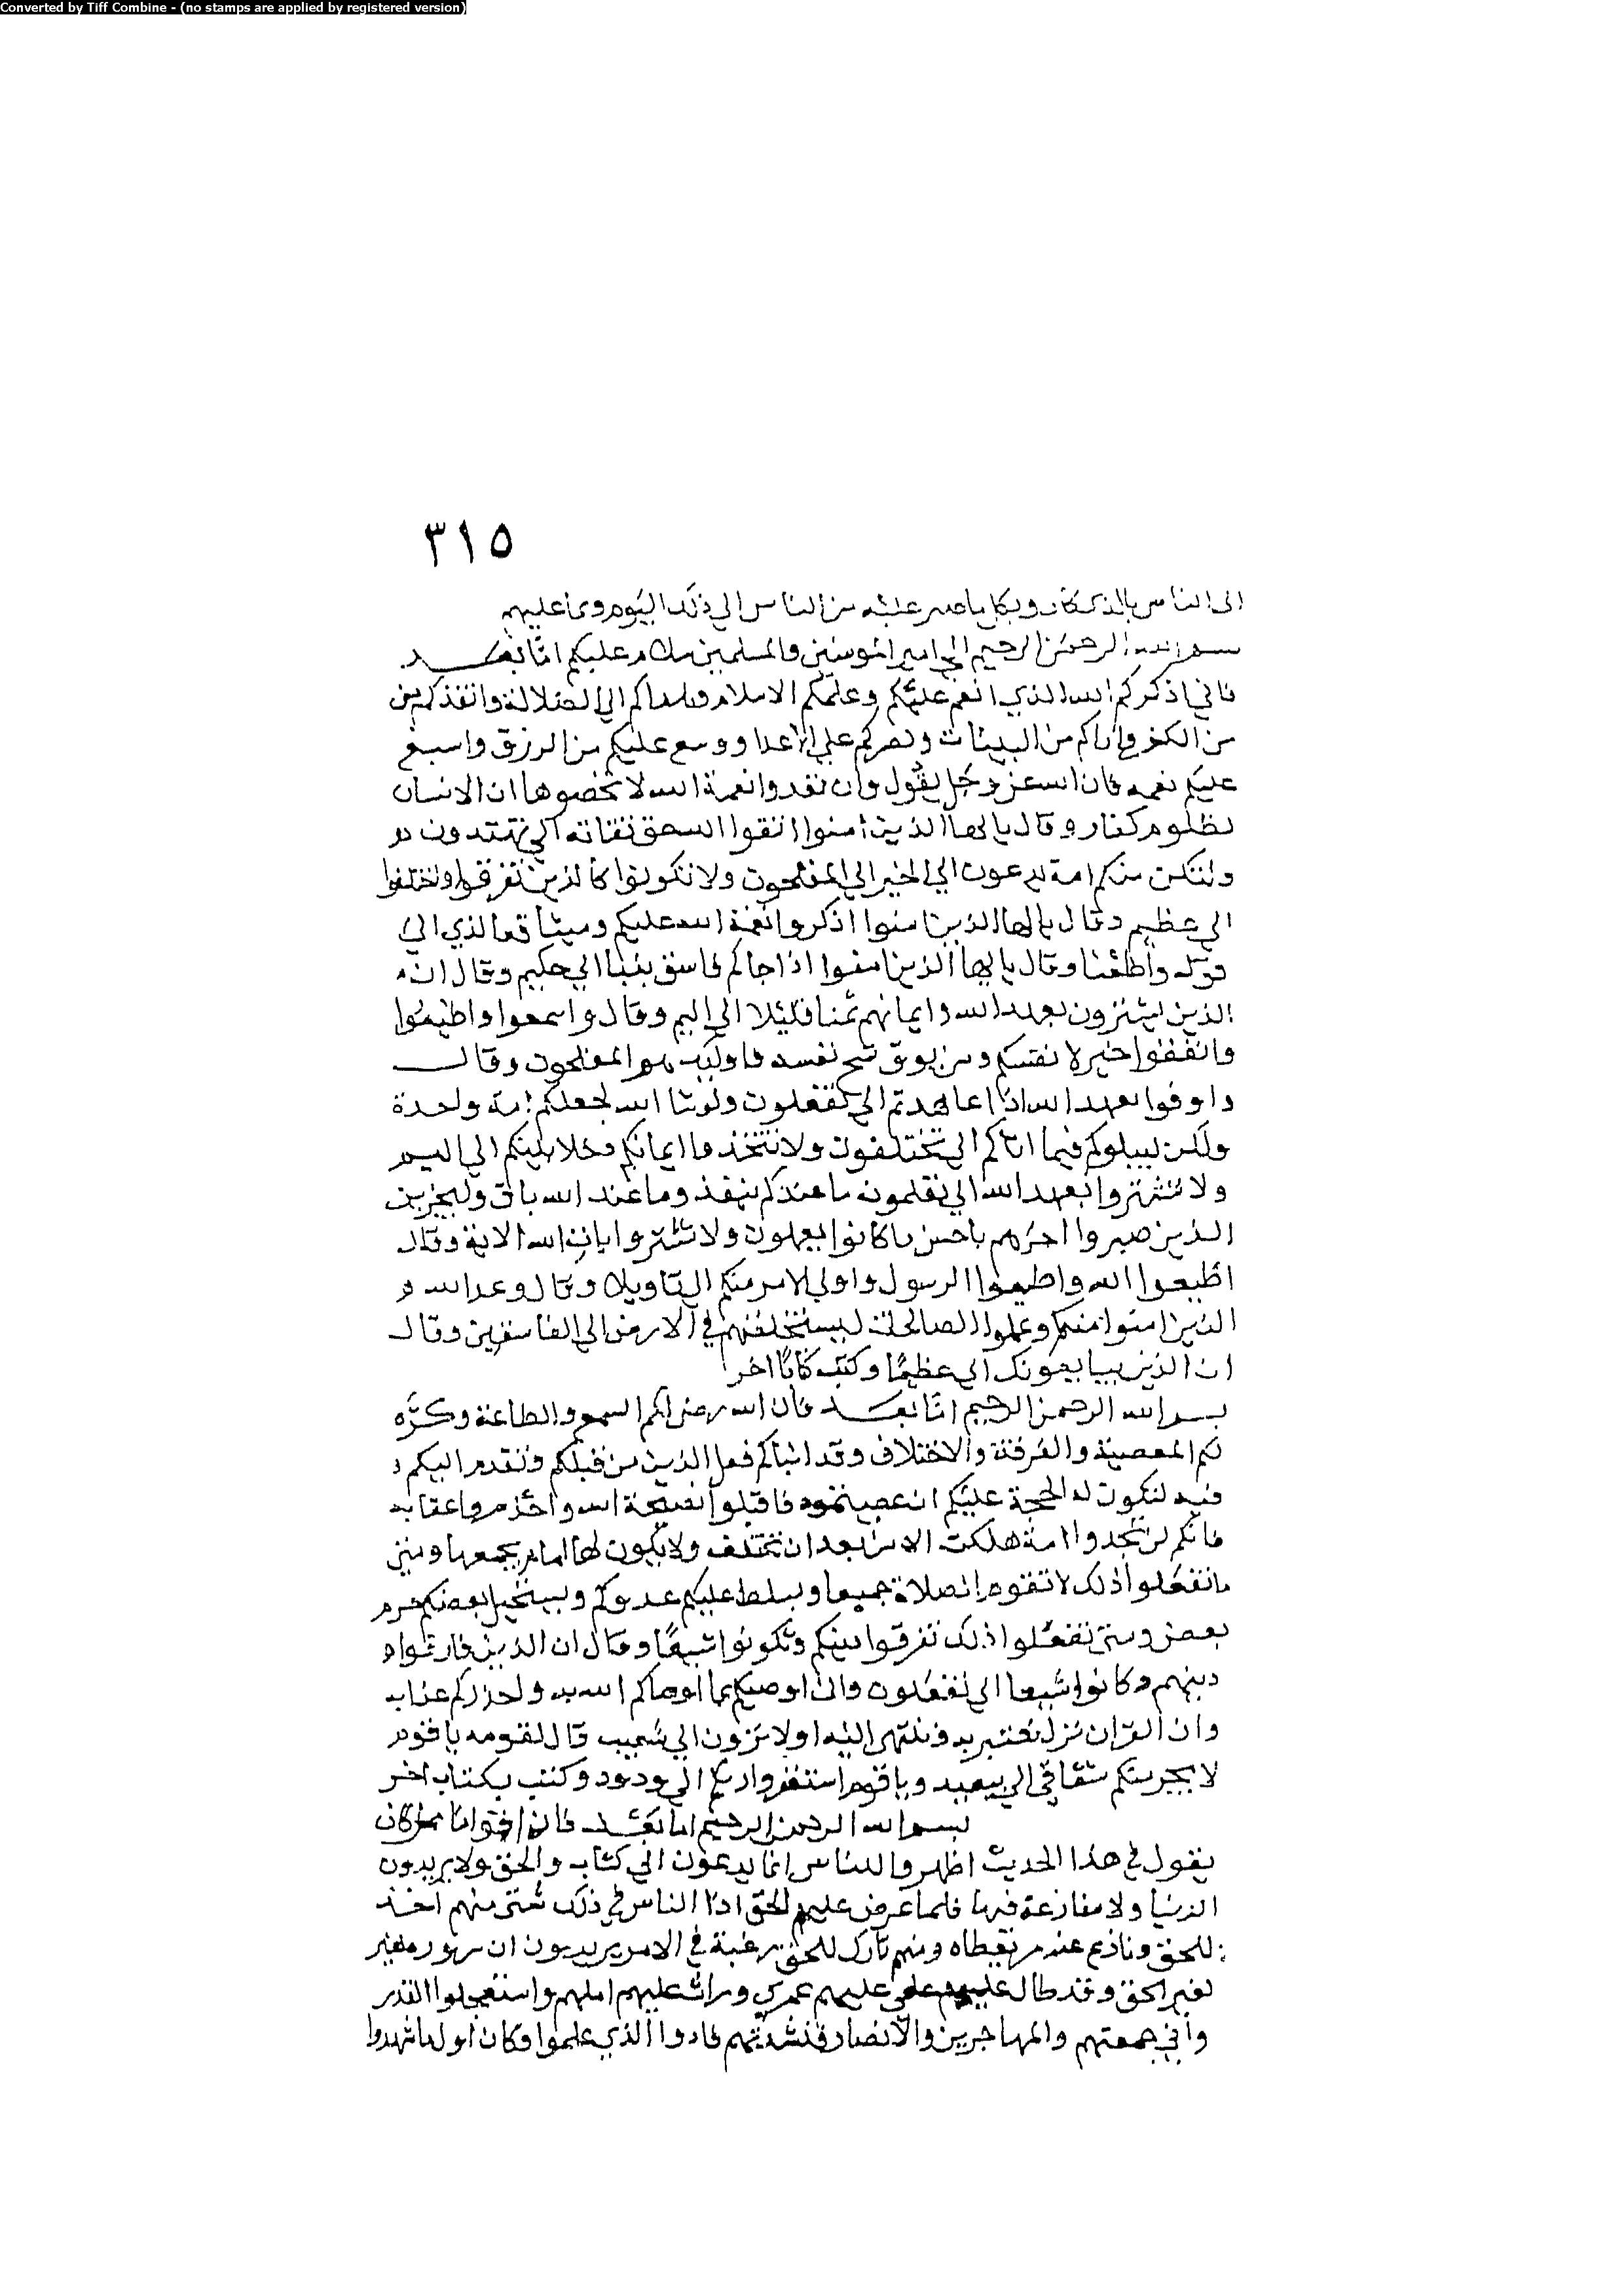 Converted by Tiff Combine - (no stamps are applied by registered version)
٣١٥
الى الناس بالذي كان وبكل ما صبر عليه من الناس الي ذلك اليوم وقرا عليهم
بسم الله الرحمن الرحيم الي امير المومنين والمسلمين سلام عليكم اما بعد
فاني اذكركم الله الذي انعم عليكم وعلمكم الاسلام وهداكم الي الضلالة وانقذكم من
من الكفر واراكم من البينات ونصركم علي الاعدا ووسع عليكم من الرزق واسبغ
عليكم نعمه فان الله عز وجل يقول وان تعدوا نعمة الله لا تحصوها ان الانسان
لظلوم كفار وقال يا ايها الذين امنوا اتقوا الله حق تقاته الي تهتدون
ولتكن منكم امة يدعون الي الخير الي المفلحون ولا تكونوا كالذين تفرقوا واختلفوا
الي عظيم وقال يا ايها الذين امنوا اذكروا نعمة الله عليكم وميثاقه الذي الي
قوله واطعنا وقال يا ايها الذين امنوا اذا جاكم فاسق بنبا الي حكيم وقال ان
الذين يشترون بعهد الله وايمانهم ثمنا قليلا الي اليم وقال واسمعوا واطيعوا
وانفقوا خير لانفسكم ومن يوق شح نفسه فاوليك هم المفلحون وقال
واوفوا بعهد الله اذا عاهدتم الي تفعلون ولو شا الله لجعلكم امة واحدة
ولكن ليبلوكم فيما اتاكم الي تختلفون ولا تتخذوا ايمانكم دخلا بينكم الي اليم
ولا تشتروا بعهد الله الي تعلمون ما عندكم ينفذ وما عند الله باق وليجزين
الذين صبروا اجرهم باحسن ما كانوا يعملون ولا تشتروا بايات الله الاية وقال
اطيعوا الله واطيعوا الرسول واولي الامر منكم الي تاويلا وقال وعد الله
الذين امنوا منكم وعملوا الصالحات ليستخلفنهم في الارض الي الفاسقين وقال
ان الذين يبايعونك الي عظيما وكتب كتابا اخر
بسم الله الرحمن الرحيم اما بعد فان الله رضي لكم السمع والطاعة وكره
لكم المعصية والفرقة والاختلاف وقد انباكم فعل الذين من قبلكم وتقدم اليكم
فيه لتكون له الحجة عليكم ان عصيتموه فاقبلوا نصيحة الله واحذروا عقابه
فانكم لن تجدوا امة هلكت الا من بعد ان تختلف ولا يكون لها امام يجمعها ومتي
ما تفعلوا ذلك لا تقوم الصلاة جميعا ويسلط عليكم عدوكم ويستحل بعضكم حرم
بعض ومتي تفعلوا ذلك تفرقوا دينكم وتكونوا شيعا وقال ان الذين فارقوا
دينهم وكانوا شيعا الي تفعلون واني اوصيكم بما اوصاكم الله به واحذركم عذابه
وان القران نزل نعتبر به وننتهي اليه اولا ترون الي شعيب قال لقومه يا قوم
لا يجرمنكم شقاقي الي ببعيد ويا قوم استغفروا ربكم الي ودود وكتب بكتاب اخر
بسم الله الرحمن الرحيم اما بعد فان اقواما ممن كان
يقول في هذا الحديث اظهروا للناس انما يدعون الي كتاب والحق ولا يريدون
الدنيا ولا منازعة فيها فلما عرض عليهم الحق اذا الناس في ذلك شتي منهم اخذ
للحق ونازع عنه من يعطاه ومنهم تارك للحق رغبة في الامر يريدون ان
لغير الحق وقد طال عليهم عمري وراث عليهم املهم واستعجلوا القدر
واني جمعتهم والمهاجرين والانصار فنشدتهم فادوا الذي علموا وكان اول ما شهدوا